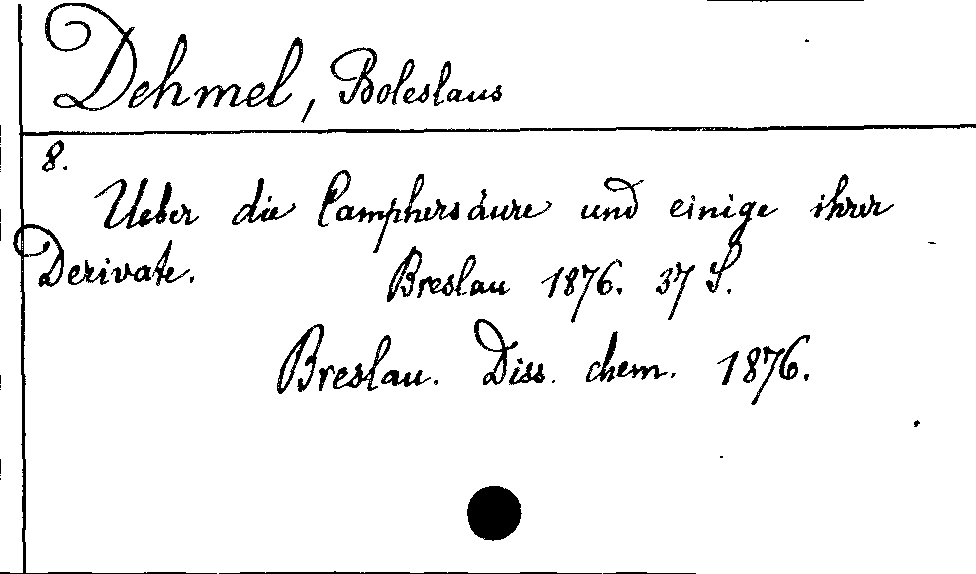 Dehmel, Boleslaus
8.
Ueber die Camphersäure und einige ihrer
Derivate. Breslau 1876. 37 S.
Breslau. Diss. chem. 1876.